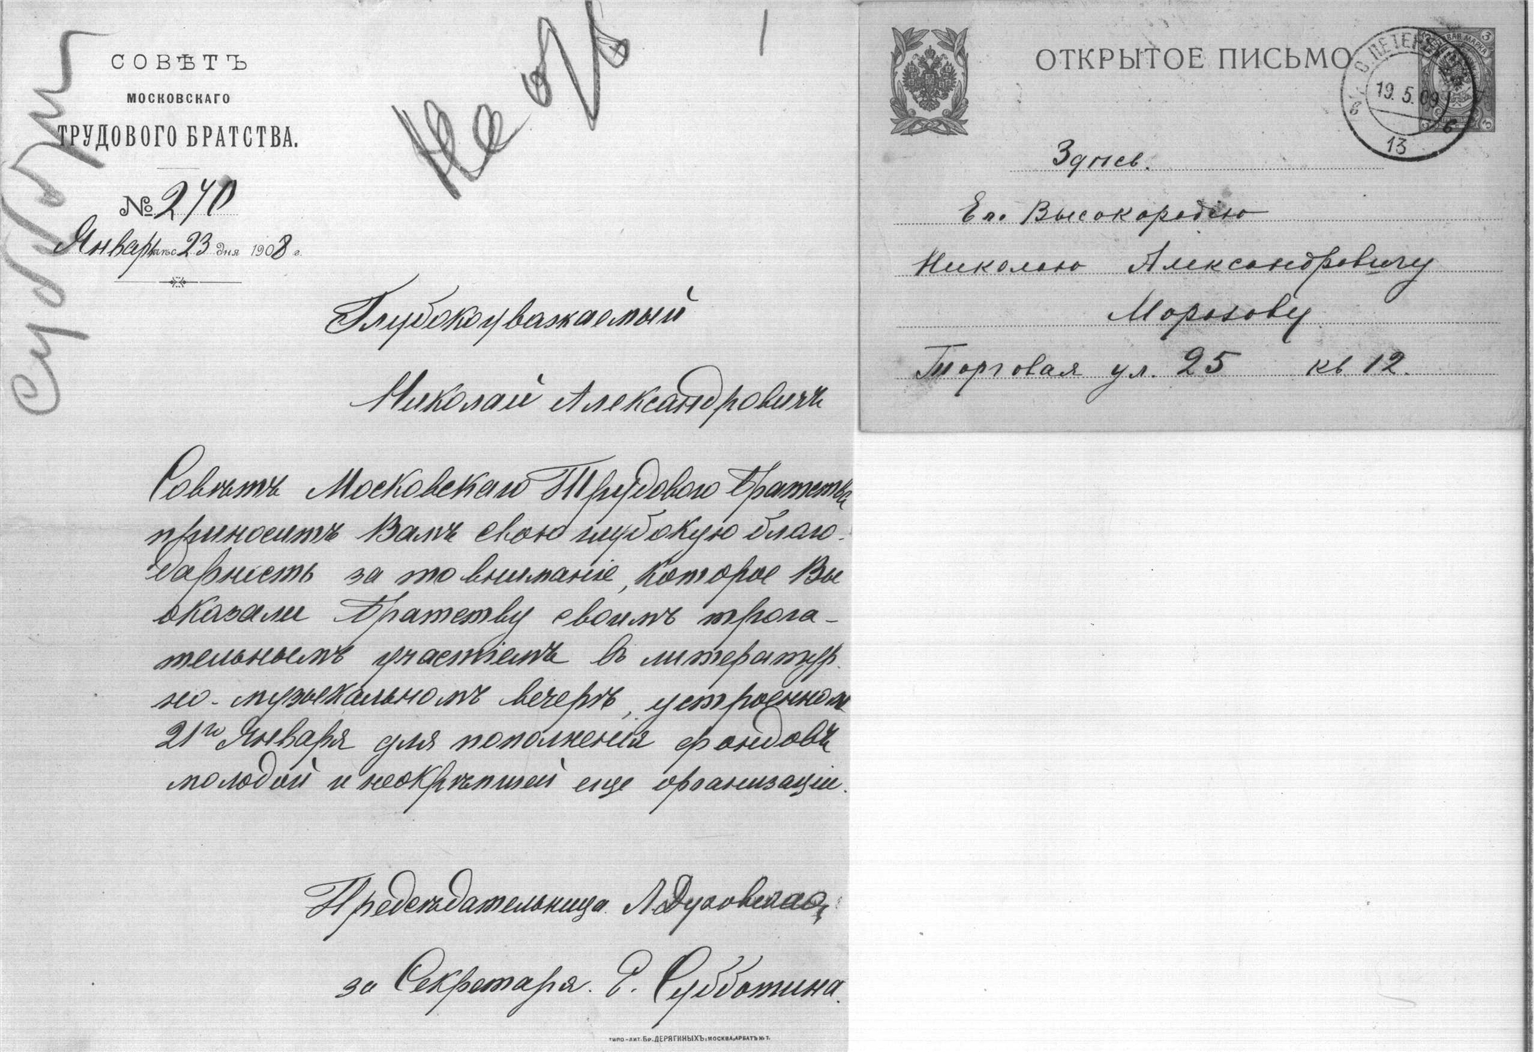 СОВѢТЪ
МОСКОВСКАГО
ТРУДОВОГО БРАТСТВА.
№ 270
Январь мѣс. 23 дня 1908 г.
Глубокоуважаемый
Николай Александровичъ
Совѣтъ Московскаго Трудового Братства
приноситъ Вамъ свою глубокую благо-
дарность за то вниманіе, которое Вы
оказали Братству своимъ трога-
тельнымъ участіемъ въ литератур
но-музыкальномъ вечерѣ, устроенном
21го Января для пополненія фондовъ
молодой и неокрѣпшей еще организаціи.
Предсѣдательница Л. Духовская
за Секретаря. Е. Субботина.
ТИПО-ЛИТ. Бр. ДЕРЯГИНЫХЪ, МОСКВА, АРБАТЪ № 7.
ОТКРЫТОЕ ПИСЬМО
С. ПЕТЕРБУРГ
19.5.09
13
Здѣсь.
Ег. Высокородію
Николаю Александровичу
Морозову
Торговая ул. 25 кв 12.